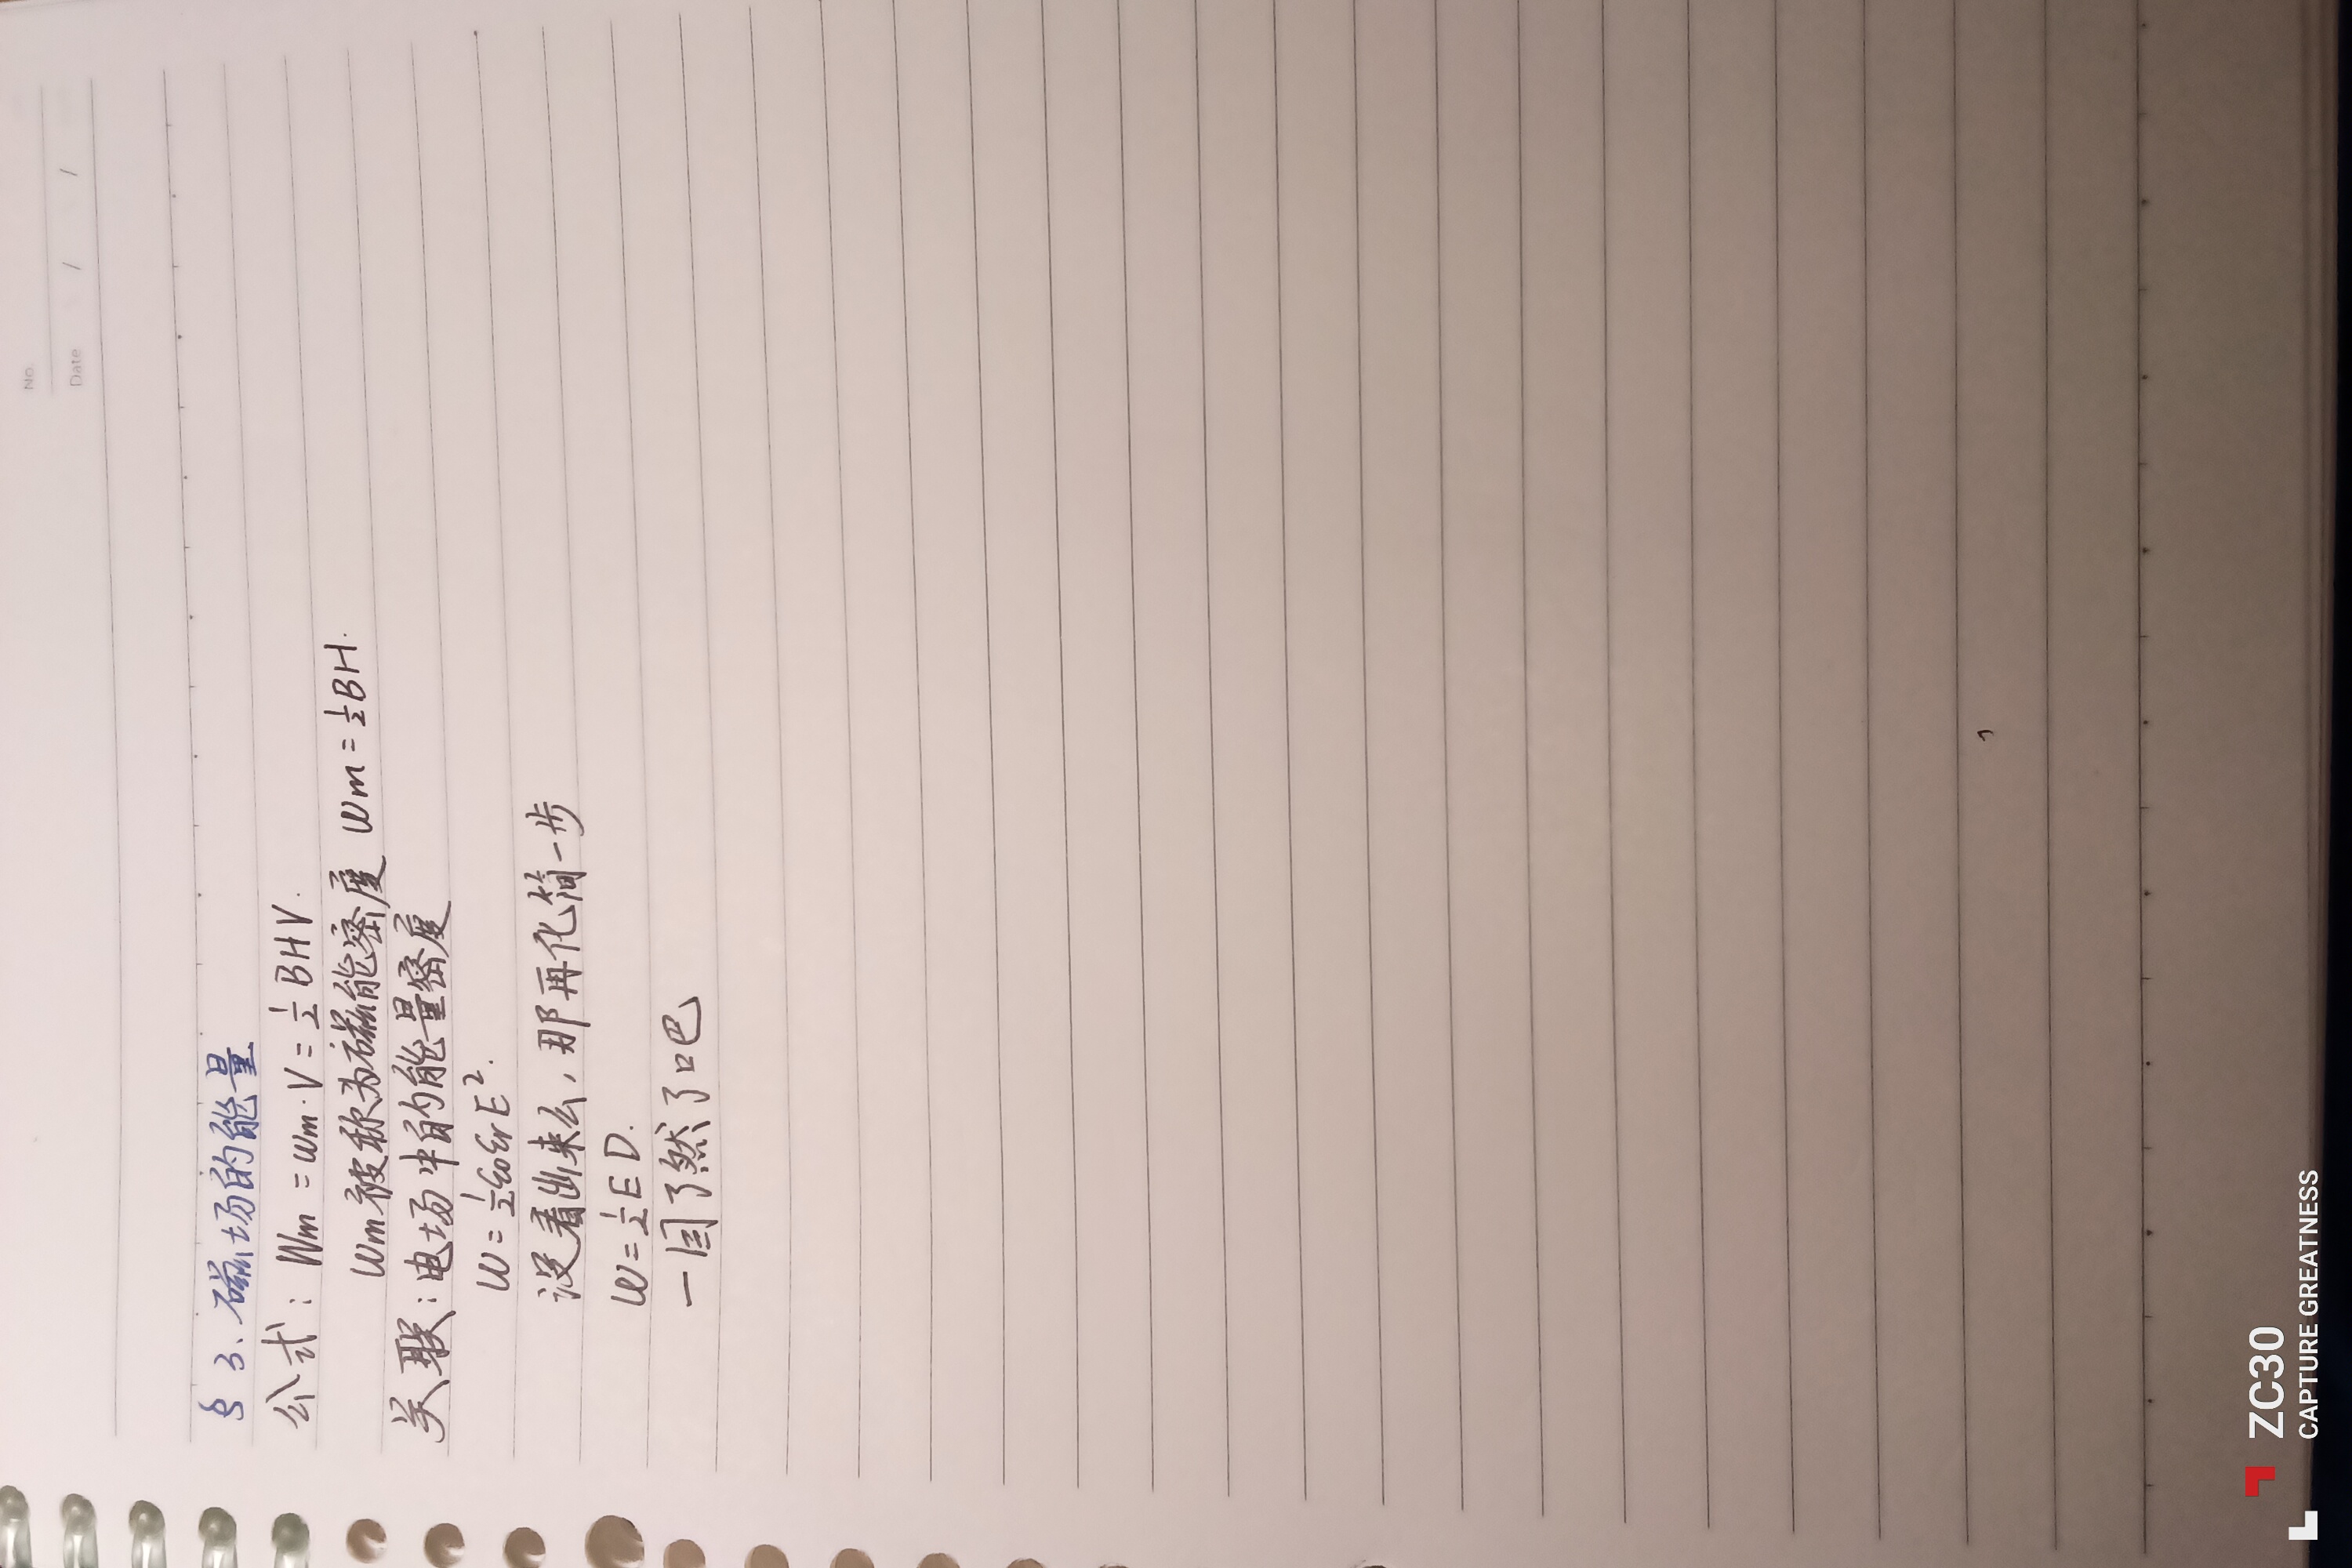 No.
Date / /
§3、磁场的能量
公式：Wm = wm·V = 1/2 BHV.
wm被称为磁能密度 wm = 1/2 BH.
关联：电场中的能量密度
w = 1/2 ε0εrE².
没看出来么，那再化简一步
w = 1/2 ED.
一目了然了吧
ZC30
CAPTURE GREATNESS